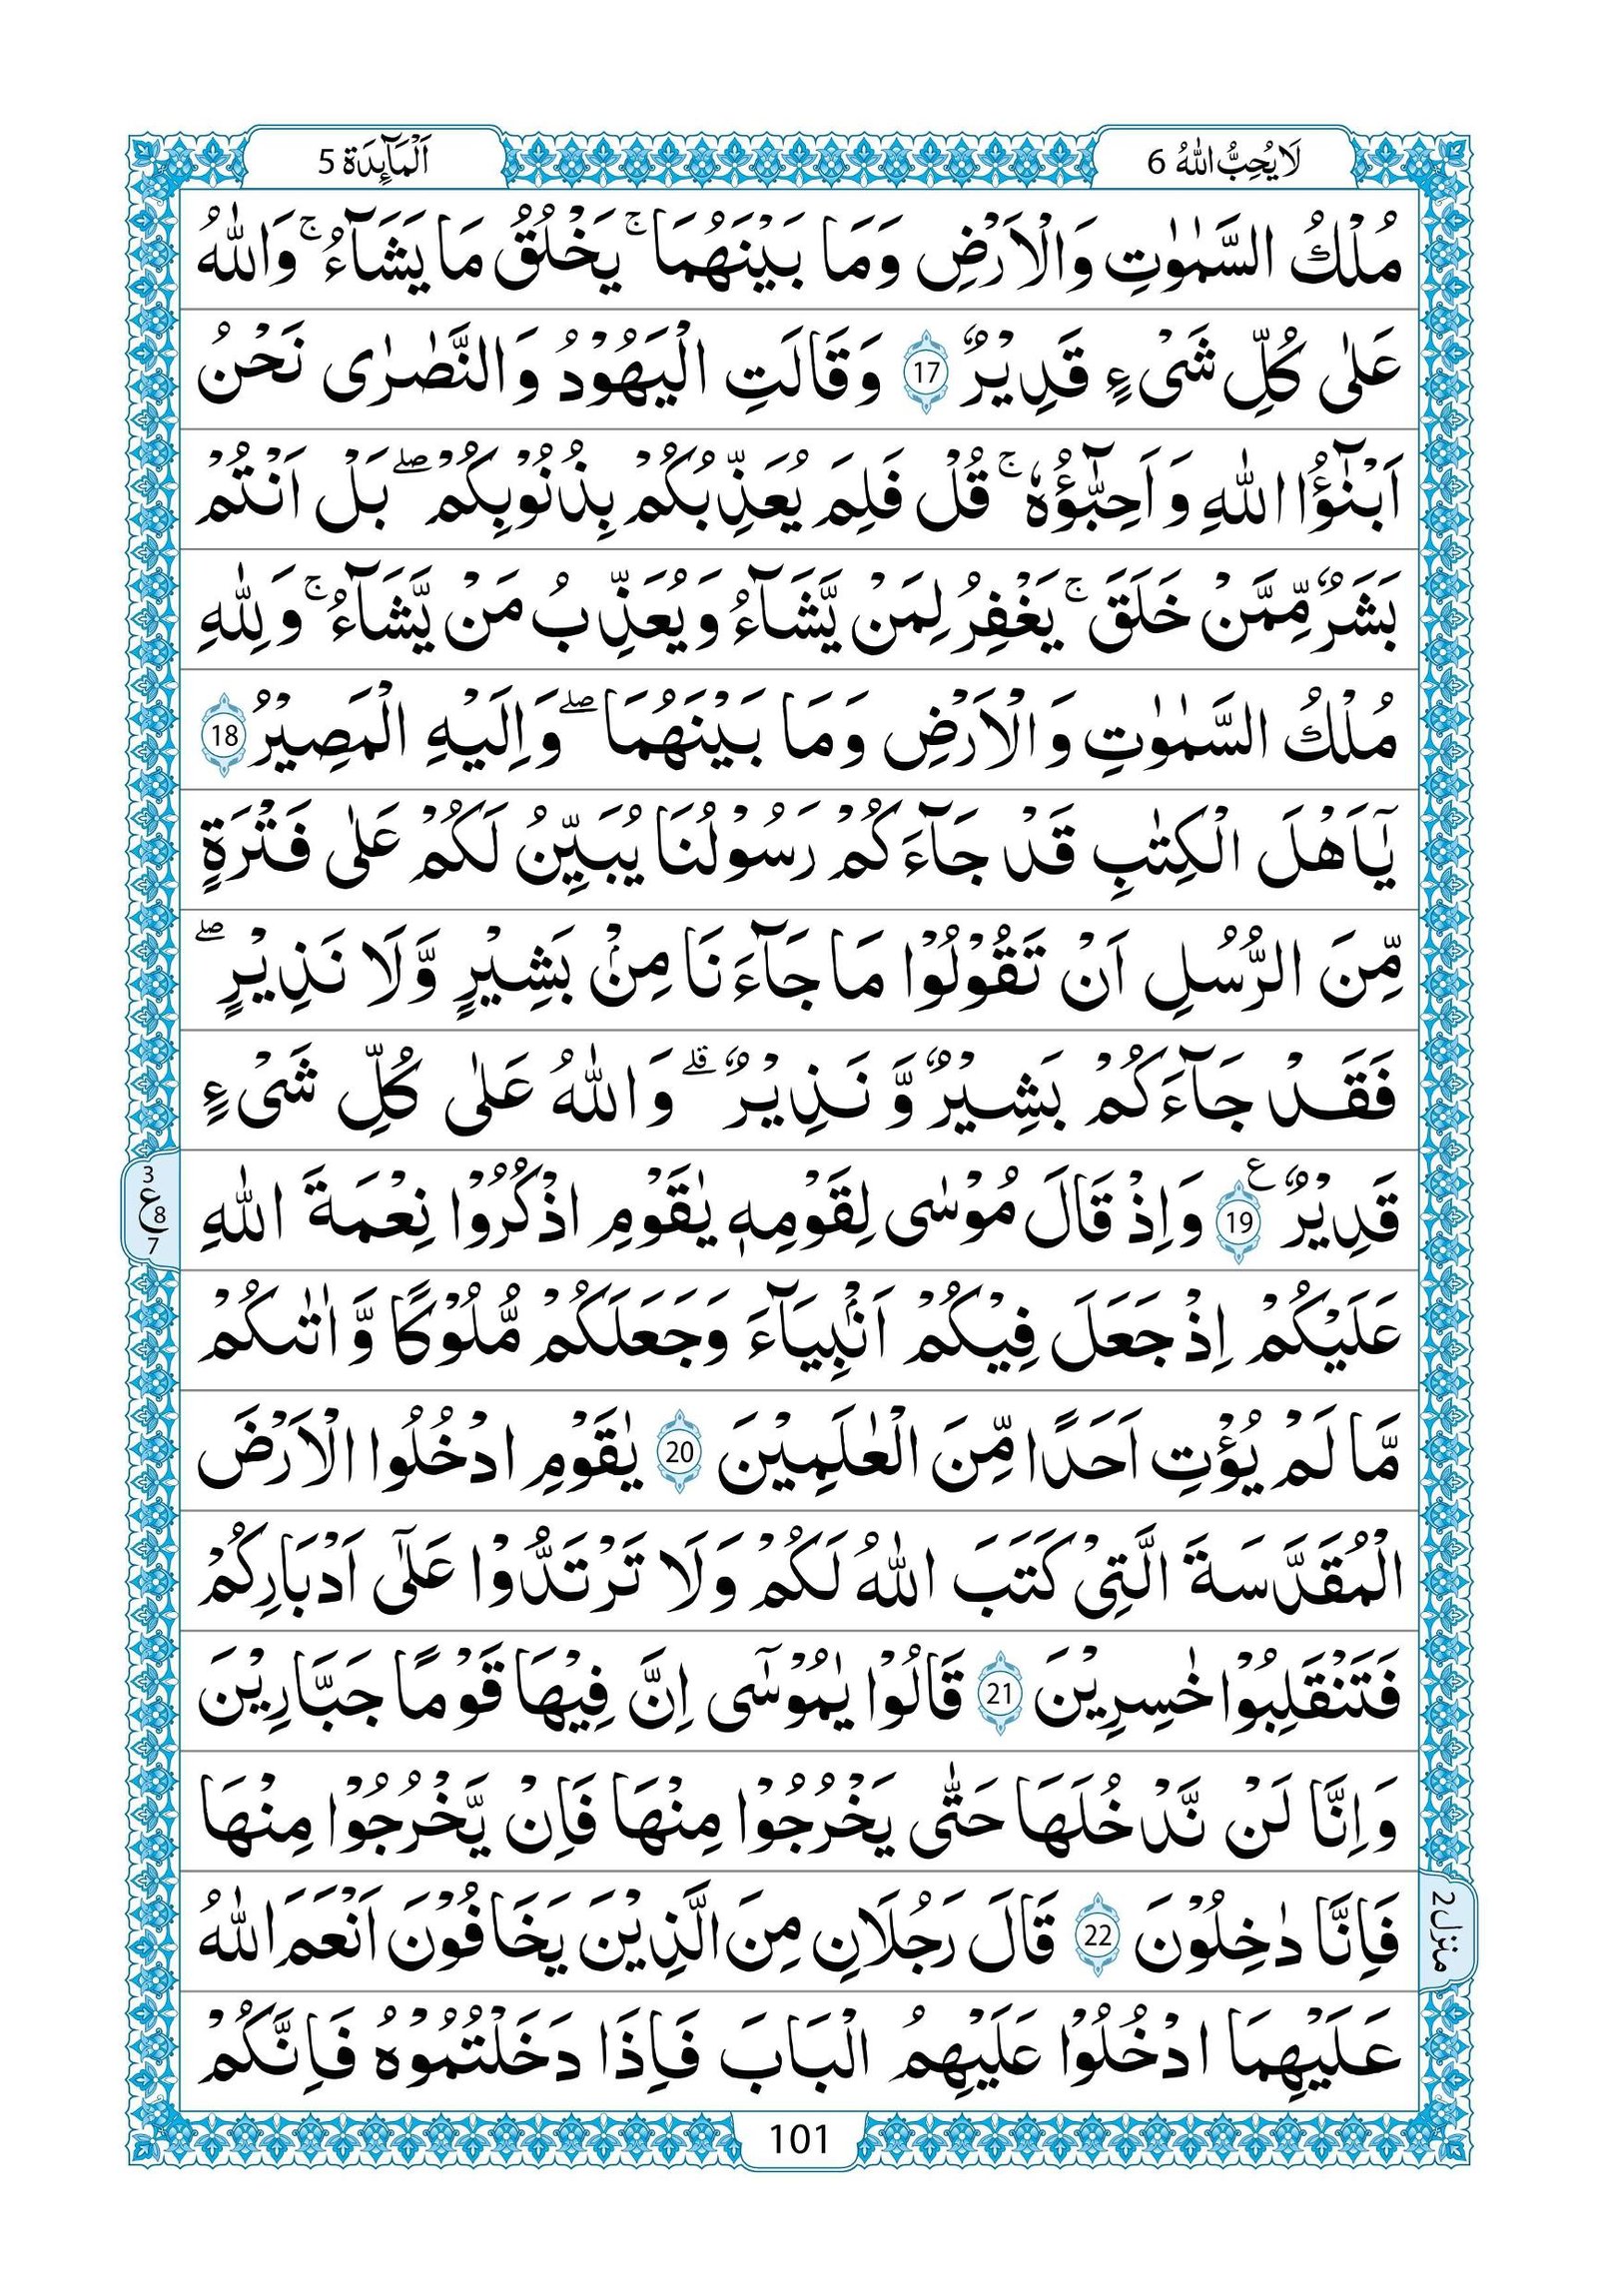 لَا يُحِبُّ اللّٰهُ 6
اَلْمَآئِدَة 5
مُلْكُ السَّمٰوٰتِ وَالْاَرْضِ وَمَا بَيْنَهُمَا ۚ يَخْلُقُ مَا يَشَآءُ ۚ وَاللّٰهُ
عَلٰى كُلِّ شَىْءٍ قَدِيْرٌ 17 وَقَالَتِ الْيَهُوْدُ وَالنَّصٰرٰى نَحْنُ
اَبْنٰٓؤُا اللّٰهِ وَاَحِبَّآؤُهٗ ۚ قُلْ فَلِمَ يُعَذِّبُكُمْ بِذُنُوْبِكُمْ ۖ بَلْ اَنْتُمْ
بَشَرٌ مِّمَّنْ خَلَقَ ۚ يَغْفِرُ لِمَنْ يَّشَآءُ وَيُعَذِّبُ مَنْ يَّشَآءُ ۚ وَلِلّٰهِ
مُلْكُ السَّمٰوٰتِ وَالْاَرْضِ وَمَا بَيْنَهُمَا ۖ وَاِلَيْهِ الْمَصِيْرُ 18
يٰٓاَهْلَ الْكِتٰبِ قَدْ جَآءَكُمْ رَسُوْلُنَا يُبَيِّنُ لَكُمْ عَلٰى فَتْرَةٍ
مِّنَ الرُّسُلِ اَنْ تَقُوْلُوْا مَا جَآءَنَا مِنْۢ بَشِيْرٍ وَّلَا نَذِيْرٍ ۖ
فَقَدْ جَآءَكُمْ بَشِيْرٌ وَّنَذِيْرٌ ۗ وَاللّٰهُ عَلٰى كُلِّ شَىْءٍ
قَدِيْرٌ ع 19 وَاِذْ قَالَ مُوْسٰى لِقَوْمِهٖ يٰقَوْمِ اذْكُرُوْا نِعْمَةَ اللّٰهِ
3 ع 8 7
عَلَيْكُمْ اِذْ جَعَلَ فِيْكُمْ اَنْۢبِيَآءَ وَجَعَلَكُمْ مُّلُوْكًا وَّاٰتٰىكُمْ
مَّا لَمْ يُؤْتِ اَحَدًا مِّنَ الْعٰلَمِيْنَ 20 يٰقَوْمِ ادْخُلُوا الْاَرْضَ
الْمُقَدَّسَةَ الَّتِىْ كَتَبَ اللّٰهُ لَكُمْ وَلَا تَرْتَدُّوْا عَلٰٓى اَدْبَارِكُمْ
فَتَنْقَلِبُوْا خٰسِرِيْنَ 21 قَالُوْا يٰمُوْسٰٓى اِنَّ فِيْهَا قَوْمًا جَبَّارِيْنَ
وَاِنَّا لَنْ نَّدْخُلَهَا حَتّٰى يَخْرُجُوْا مِنْهَا فَاِنْ يَّخْرُجُوْا مِنْهَا
فَاِنَّا دٰخِلُوْنَ 22 قَالَ رَجُلَانِ مِنَ الَّذِيْنَ يَخَافُوْنَ اَنْعَمَ اللّٰهُ
منزل 2
عَلَيْهِمَا ادْخُلُوْا عَلَيْهِمُ الْبَابَ فَاِذَا دَخَلْتُمُوْهُ فَاِنَّكُمْ
101